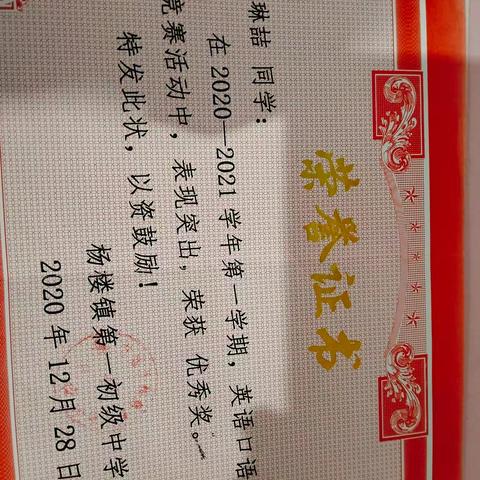 荣誉证书
琳喆 同学：
在 2020—2021 学年第一学期，英语口语
竞赛活动中，表现突出，荣获 优秀奖。
特发此状，以资鼓励！
杨楼镇第一初级中学
2020 年 12月 28日